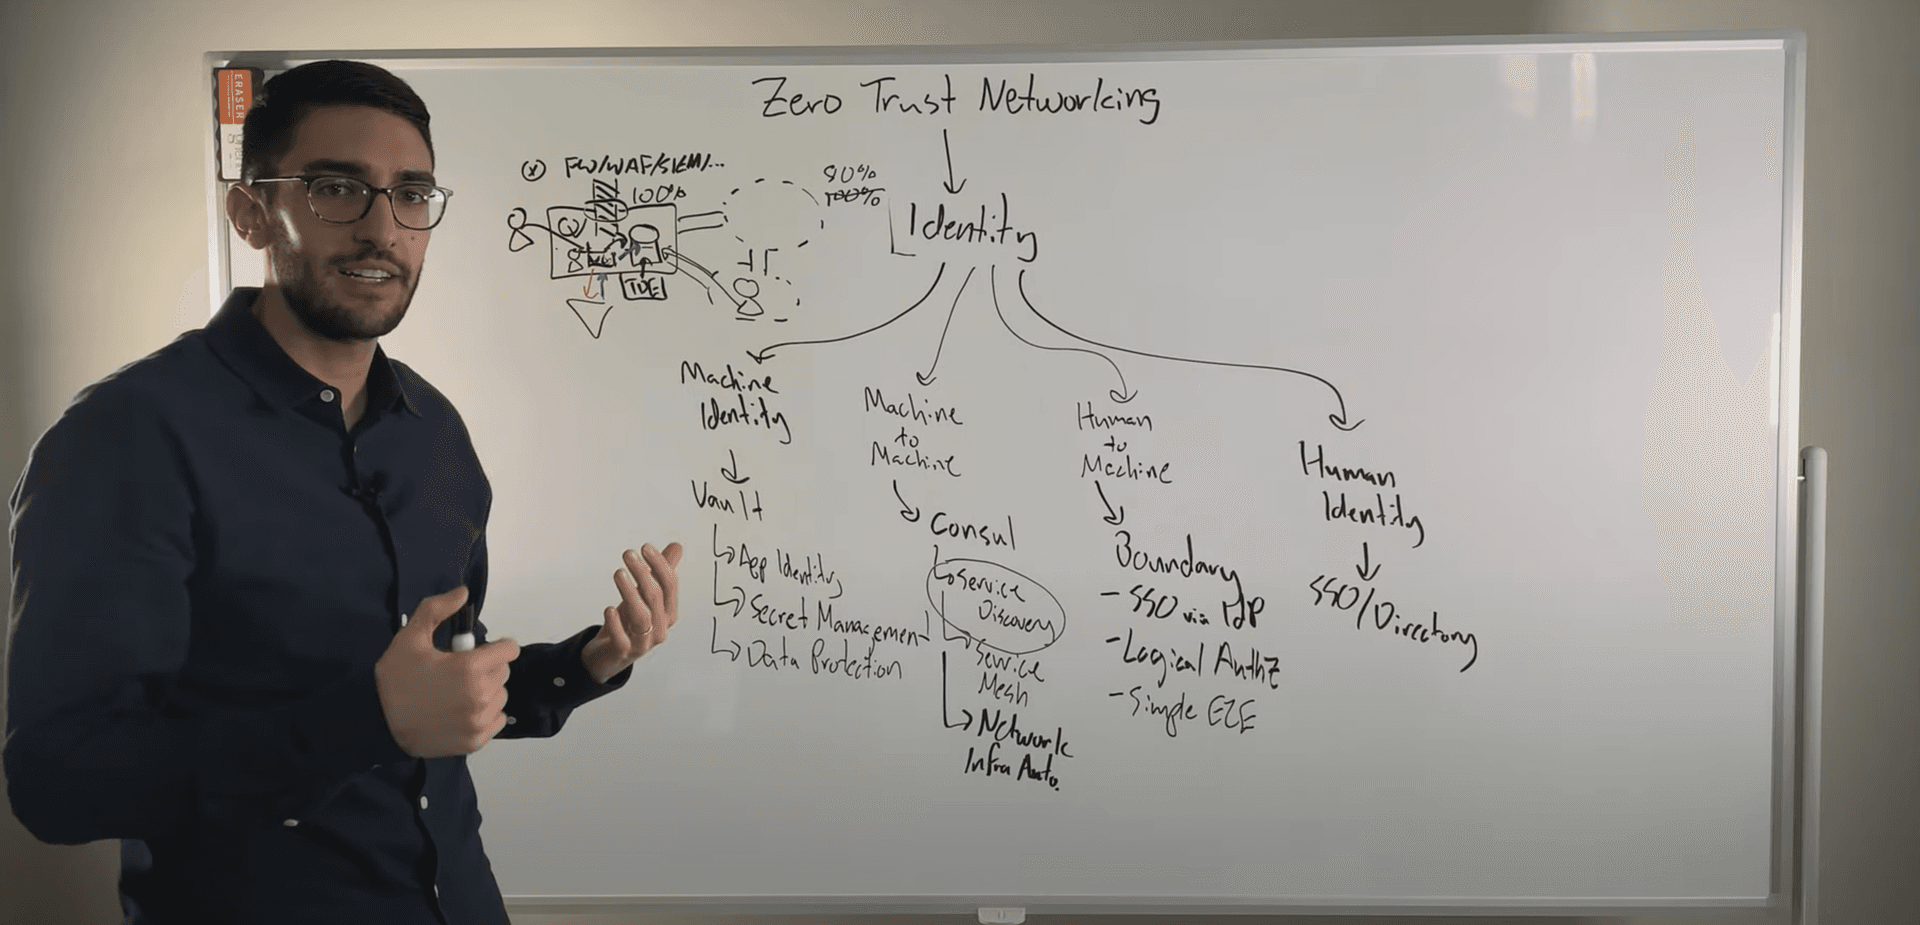 ERASER
Zero Trust Networking
FW/WAF/SIEM/...
100%
90%
100%
Identity
TDE
Machine
Identity
Vault
App Identity
Secret Management
Data Protection
Machine
to
Machine
Consul
Service
Discovery
Service
Mesh
Network
Infra Auto.
Human
to
Machine
Boundary
- SSO via IdP
- Logical AuthZ
- Simple E2E
Human
Identity
SSO/Directory